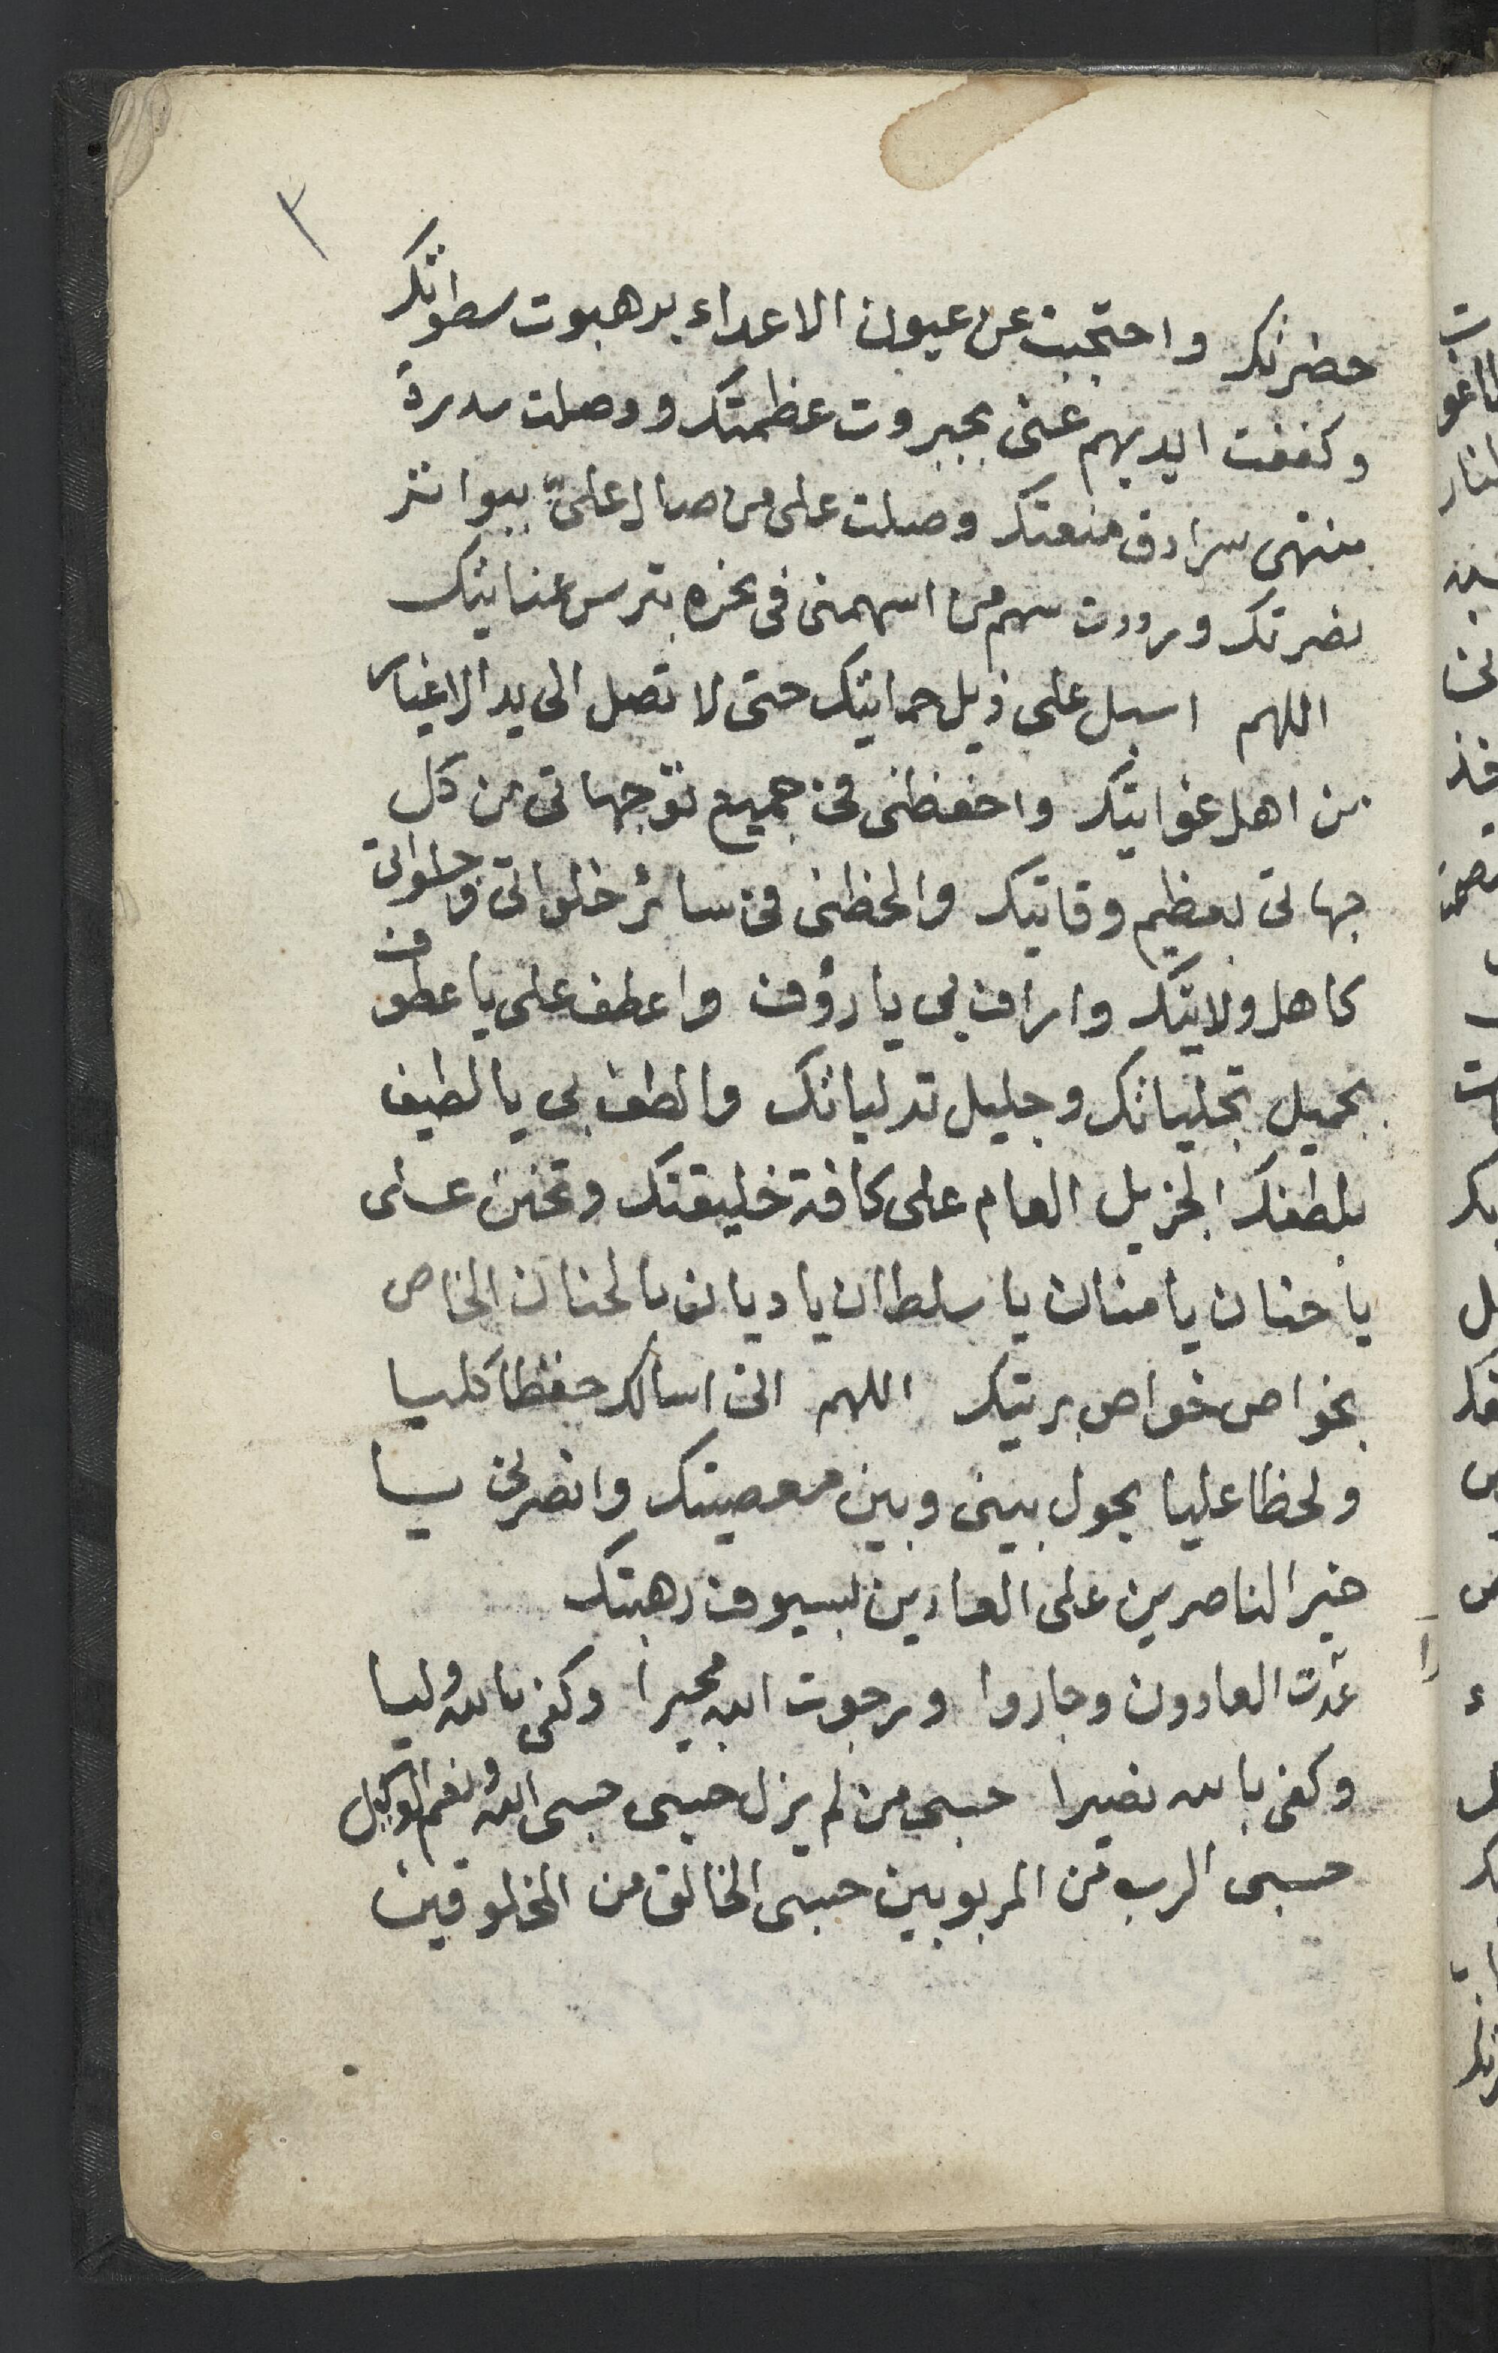 ٣
حضرتك واحتجبت عن عيون الاعداء برهبوت سطواتك
وكففت ايديهم عنى بجبروت عظمتك ووصلت سدرة
منتهى سرادق منعتك وصلت على من صال علىّ ببواتر
نصرتك ورددت سهم من اسهمنى فى نحره بترس عنايتك
اللهم اسبل على ذيل حمايتك حتى لا تصل الى يد الاغيار
من اهل غوايتك واحفظنى فى جميع توّجهاتى من كل
جهاتى بعظيم وقايتك والحظنى فى سائر خلواتى وجلواتى
كاهل ولايتك واراف بى يا رؤف واعطف على يا عطوف
بجميل تجلياتك وجليل تدلياتك والطف بى يا لطيف
بلطفك الجزيل العام على كافة خليقتك وتحنن على
يا حنان يا منان يا سلطان يا ديان بالحنان الخاص
بخواص خواص بريتك اللهم انى اسالك حفظا كليا
ولحظا عليا يحول بينى وبين معصيتك وانصرنى يا
خير الناصرين على العادين بسيوف رهبتك
عدت العادون وجاروا ورجوت الله مجيرا وكفى بالله وليا
وكفى بالله نصيرا حسبى من لم يزل حسبى حسبى الله ونعم الوكيل
حسبى الرب من المربوبين حسبى الخالق من المخلوقين